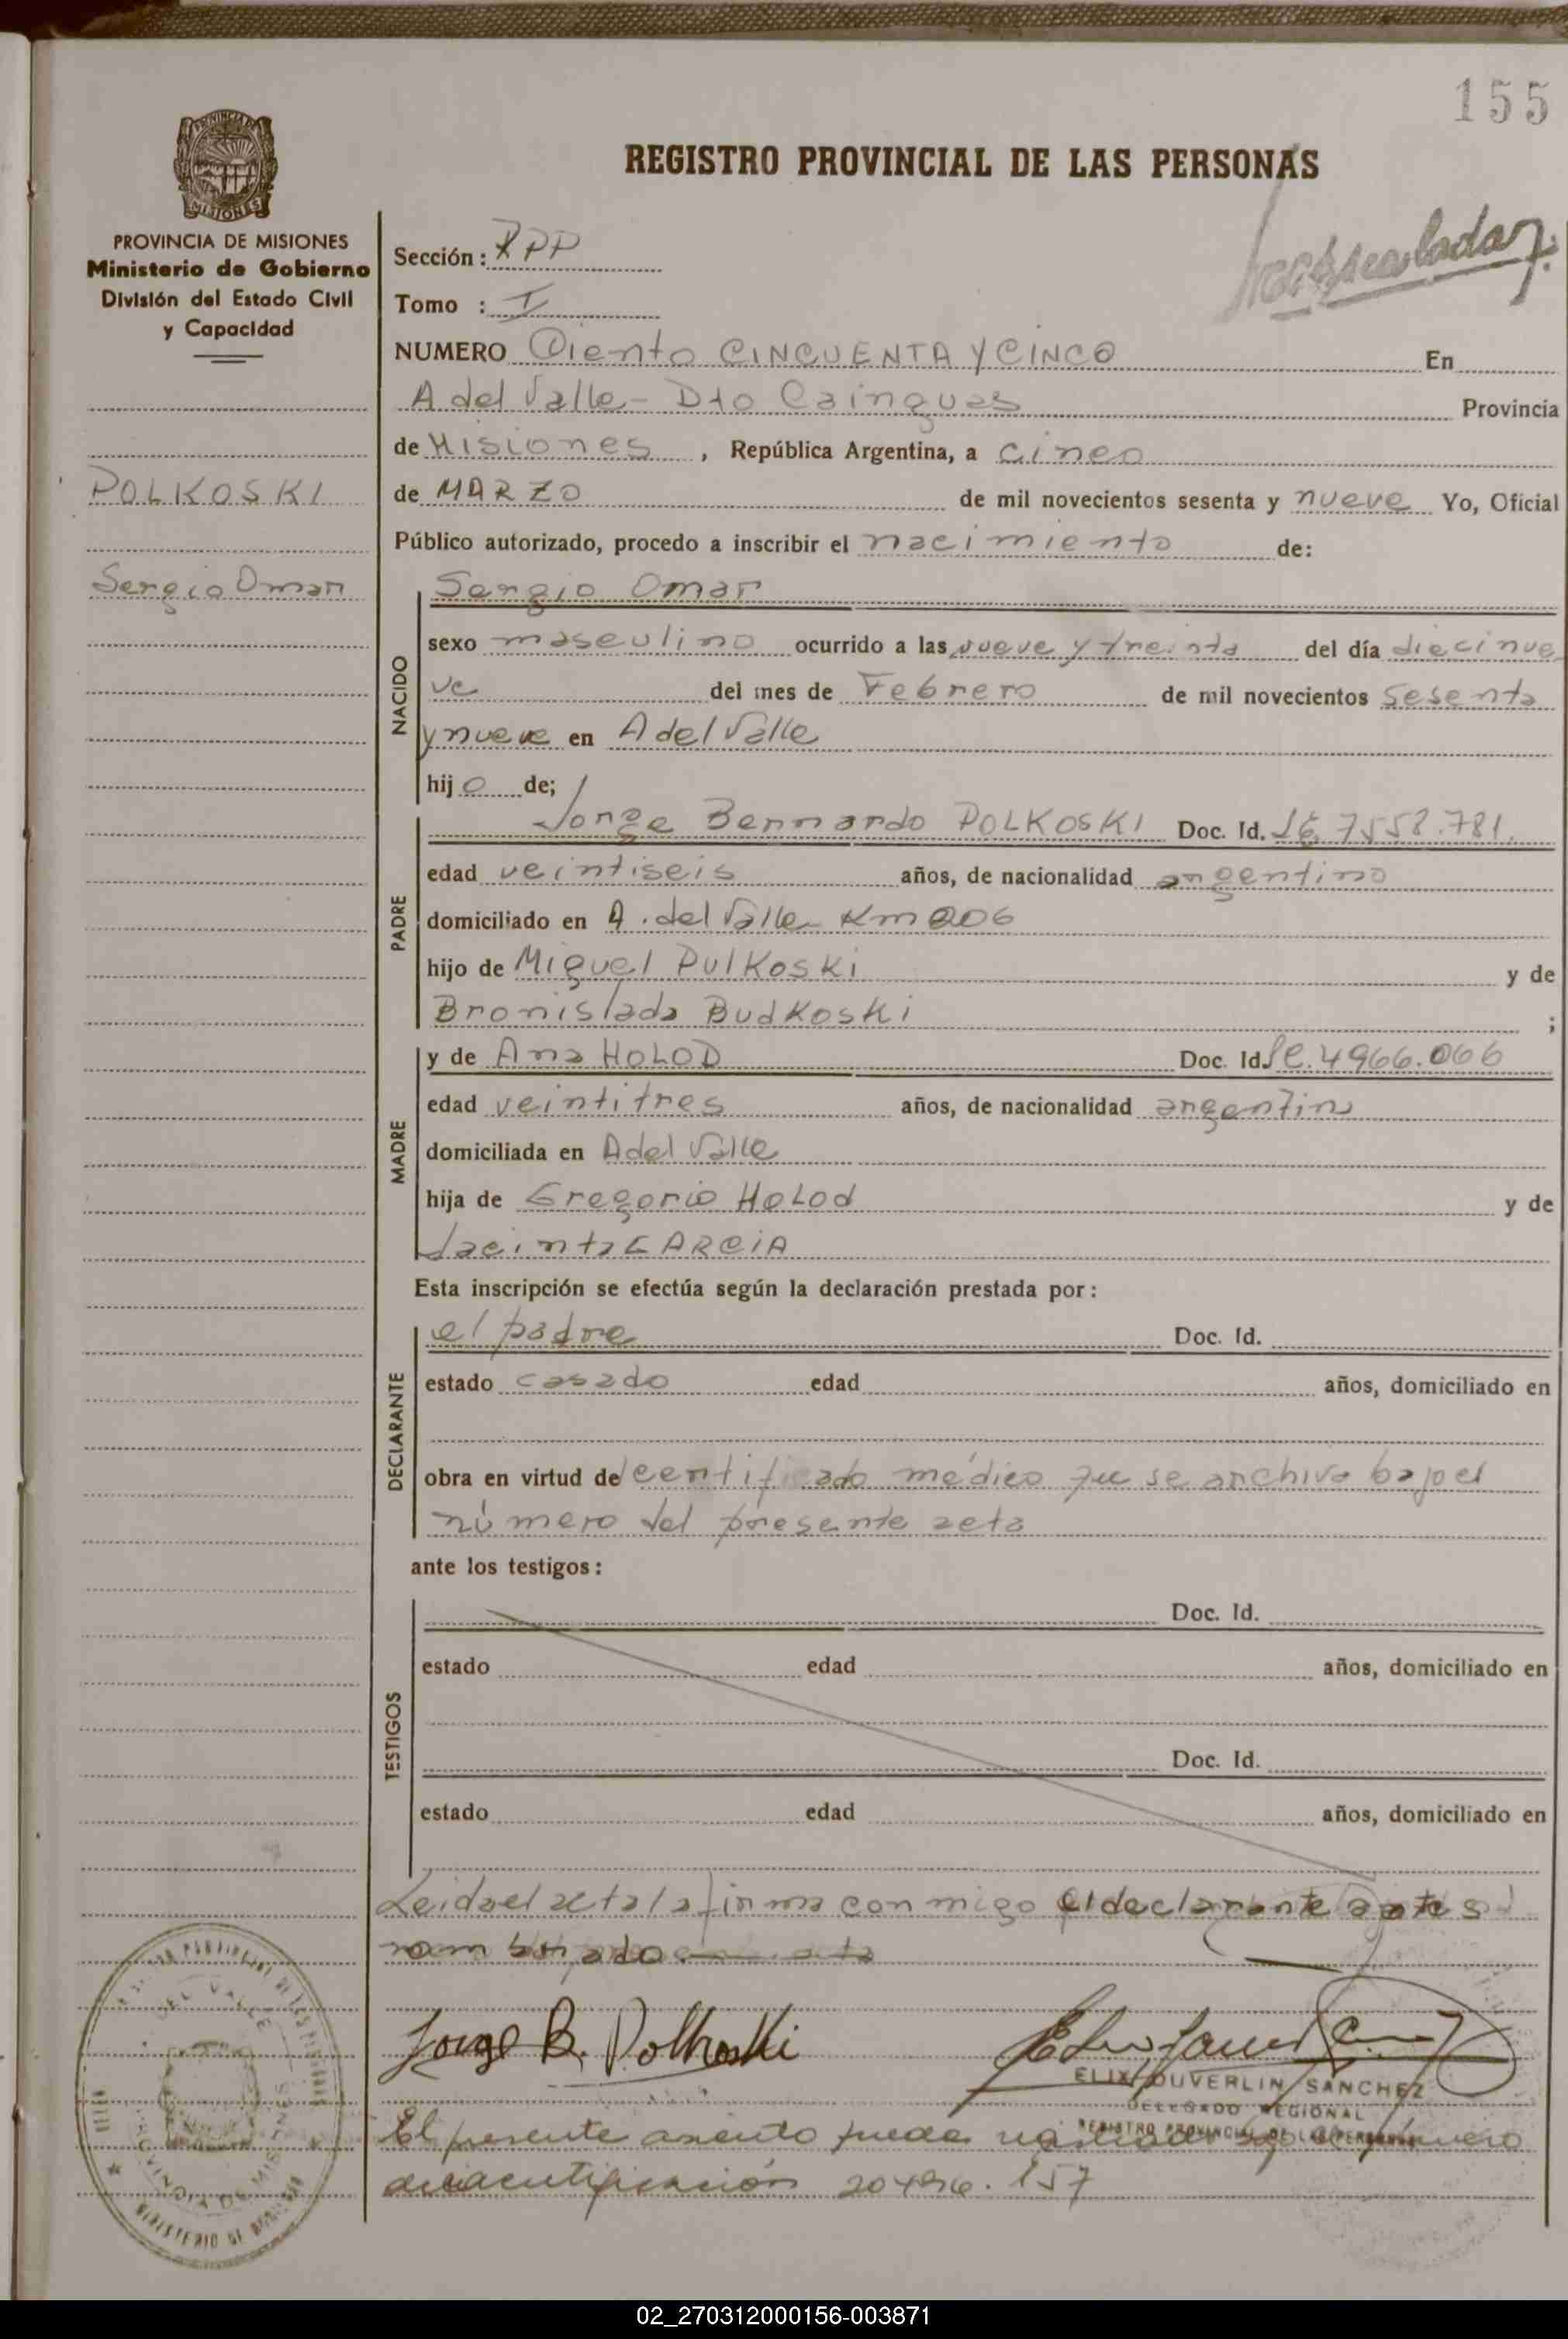 155
REGISTRO PROVINCIAL DE LAS PERSONAS
PROVINCIA DE MISIONES
Ministerio de Gobierno
División del Estado Civil
y Capacidad
POLKOSKI
Sergio Omar
Sección: RPP
Tomo : I
NUMERO Ciento CINCUENTA Y CINCO En
A del Valle - Dto Cainguas Provincia
de Misiones, República Argentina, a cinco
de MARZO de mil novecientos sesenta y nueve Yo, Oficial
Público autorizado, procedo a inscribir el nacimiento de:
NACIDO
Sergio Omar
sexo masculino ocurrido a las nueve y treinta del día diecinue
ve del mes de Febrero de mil novecientos sesenta
y nueve en A del Valle
hijo de;
PADRE
Jorge Bernardo POLKOSKI Doc. Id. 7558.781.
edad veintiseis años, de nacionalidad argentino
domiciliado en A. del Valle Km 206
hijo de Miguel PulKosKi y de
Bronislada BudKosKi ;
MADRE
y de Ana HOLOD Doc. Id. 4966.066
edad veintitres años, de nacionalidad argentina
domiciliada en A del Valle
hija de Gregorio HoLod y de
Jacinta GARCIA
Esta inscripción se efectúa según la declaración prestada por:
DECLARANTE
el padre Doc. Id.
estado casado edad años, domiciliado en
obra en virtud del certificado médico que se archiva bajo el
número del presente acta
ante los testigos:
TESTIGOS
Doc. Id.
estado edad años, domiciliado en
Doc. Id.
estado edad años, domiciliado en
Leida el acta la firma con migo el declarante antes
nombrado
Jorge B. Polkoski
ELIX DUVERLIN SANCHEZ
DELEGADO REGIONAL
REGISTRO PROVINCIAL DE LAS PERSONAS
DEL VALLE
PROVINCIA DE MISIONES
MINISTERIO DE GOBIERNO
El presente asiento queda número
20496.157
02_270312000156-003871